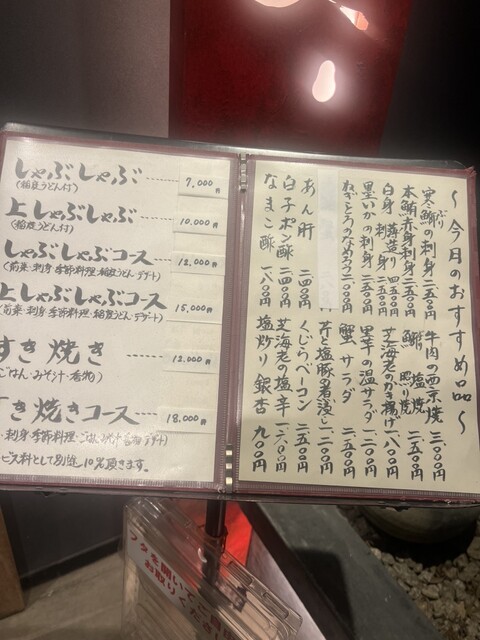 しゃぶしゃぶ 7,000円
(稲庭うどん付)
上しゃぶしゃぶ 10,000円
(稲庭うどん付)
しゃぶしゃぶコース 12,000円
(前菜・刺身・季節料理・稲庭うどん・デザート)
上しゃぶしゃぶコース 15,000円
(前菜・刺身・季節料理・稲庭うどん・デザート)
すき焼き 12,000円
ごはん・みそ汁・香物)
すき焼きコース 18,000円
・刺身・季節料理・ごはん
ビス料として別途10%頂きます。
〜今月のおすすめ品〜
寒鰤の刺身 二五〇〇円
ぶり
本鮪赤身刺身 二五〇〇円
白身薄造り
刺身
墨いかの刺身
ねぎとろのなめろう 二〇〇〇円
あん肝 二四〇〇円
白子ポン酢 二四〇〇円
なまこ酢 一八〇〇円
牛肉の西京焼 三〇〇〇円
鰤 塩焼 照り焼 二五〇〇円
芝海老のかき揚げ 一八〇〇円
里芋の温サラダ 一二〇〇円
蟹サラダ 二五〇〇円
芹と塩豚の煮浸し 二二〇〇円
くじらベーコン 二五〇〇円
芝海老の塩辛 一六〇〇円
塩炒り銀杏 九〇〇円
フタを開いてご
お取りください